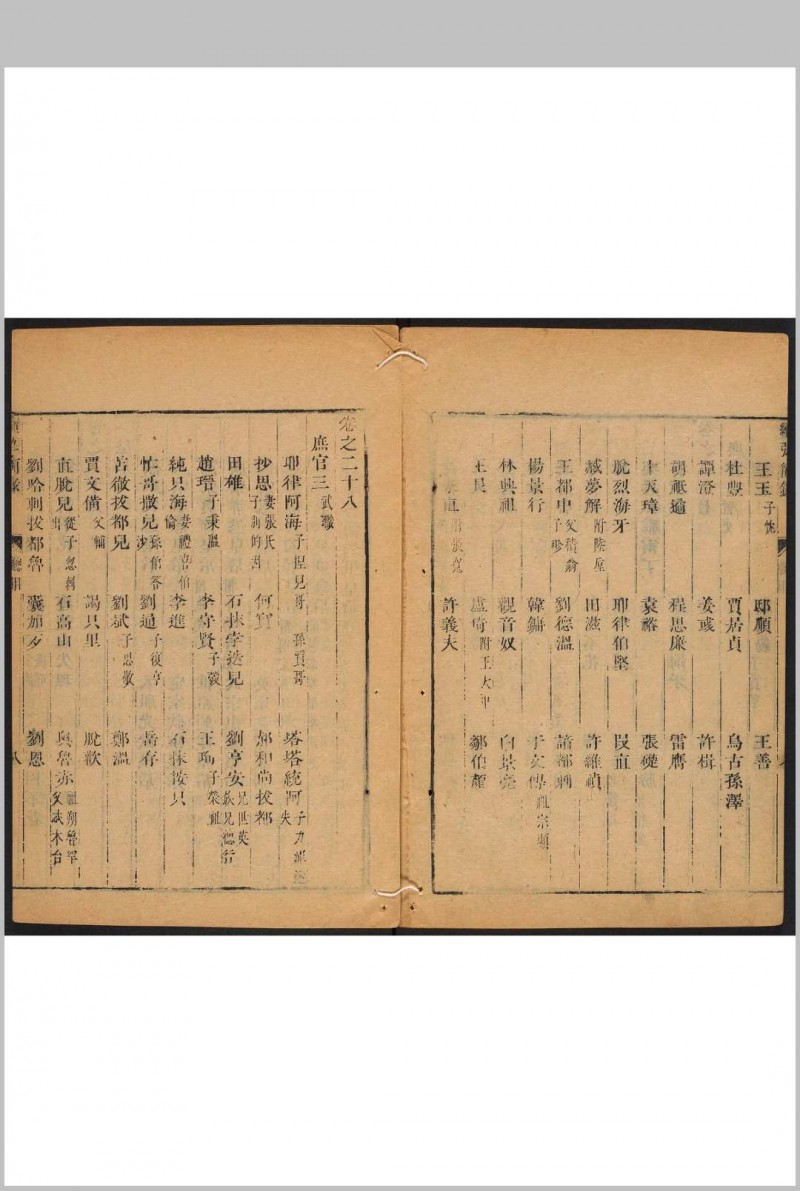 王玉 子忱 邸順 王善
杜豐 賈居貞 烏古孫澤
譚澄 姜彧 許楫
胡祗遹 程思廉 雷膺
王天璋 袁裕 張礎
脫烈海牙 耶律伯堅 段直
臧夢解 附陸垕 田滋 許維禎
王都中 父積翁 子畛 劉德溫 諳都剌
楊景行 韓鏞 于文傳 祖宗顯
林興祖 觀音奴 白景亮
王艮 盧琦 附王大中 鄒伯顏
許義夫
卷之二十八
庶官三 武職
耶律阿海 子捏兒哥 孫買哥 塔塔統阿
抄思 妻張氏 子別的因 何實 郝和尚拔都
田雄 石抹孛迭兒 劉亨安 兄世英 族兄德仁
趙瑨 子秉溫 李守賢 子彀 王珣 子榮祖
純只海 李進 石抹按只
怯哥撒兒 劉通 子復亨 岳存
苫徹拔都兒 劉斌 子思敬 鄭溫
賈文備 父輔 謁只里 脫歡
直脫兒 從子忽剌出 石高山 與魯赤 祖朔魯罕 父忒木台
劉哈剌拔都魯 囊加歹 劉恩
八